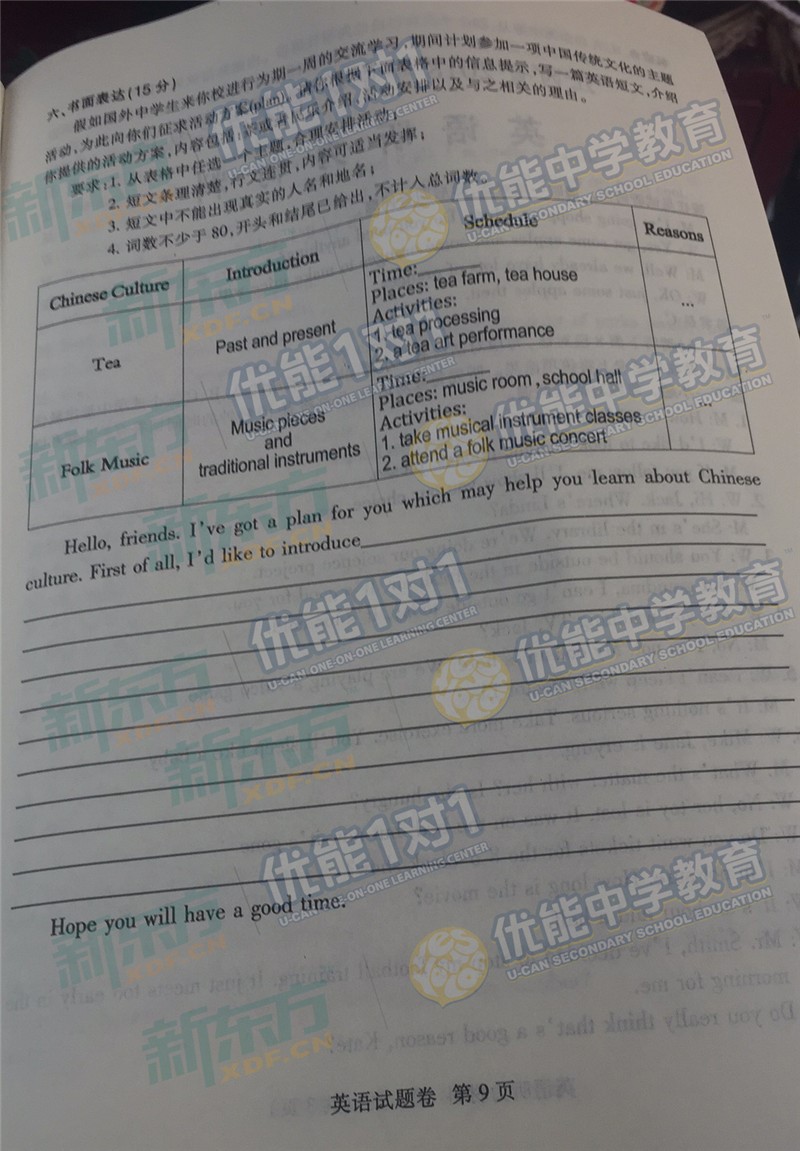 六、书面表达(15分)
假如国外中学生来你校进行为期一周的交流学习,期间计划参加一项中国传统文化的主题
活动,为此向你们征求活动方案(plan)。请你根据下面表格中的信息提示,写一篇英语短文,介绍
你提供的活动方案,内容包括 介绍、活动安排以及与之相关的理由。
要求:1. 从表格中任选一个主题,合理安排活动;
2. 短文条理清楚,行文连贯,内容可适当发挥;
3. 短文中不能出现真实的人名和地名;
4. 词数不少于80,开头和结尾已给出,不计入总词数。
Chinese Culture Introduction Schedule Reasons
Tea
Past and present
Time:
Places: tea farm, tea house
Activities:
1. tea processing
2. a tea art performance
...
Folk Music
Music pieces
and
traditional instruments
Time:
Places: music room , school hall
Activities:
1. take musical instrument classes
2. attend a folk music concert
...
Hello, friends. I've got a plan for you which may help you learn about Chinese
culture. First of all, I'd like to introduce
Hope you will have a good time.
英语试题卷 第9页
优能1对1
U-CAN ONE-ON-ONE LEARNING CENTER
优能中学教育
U-CAN SECONDARY SCHOOL EDUCATION
新东方
XDF.CN